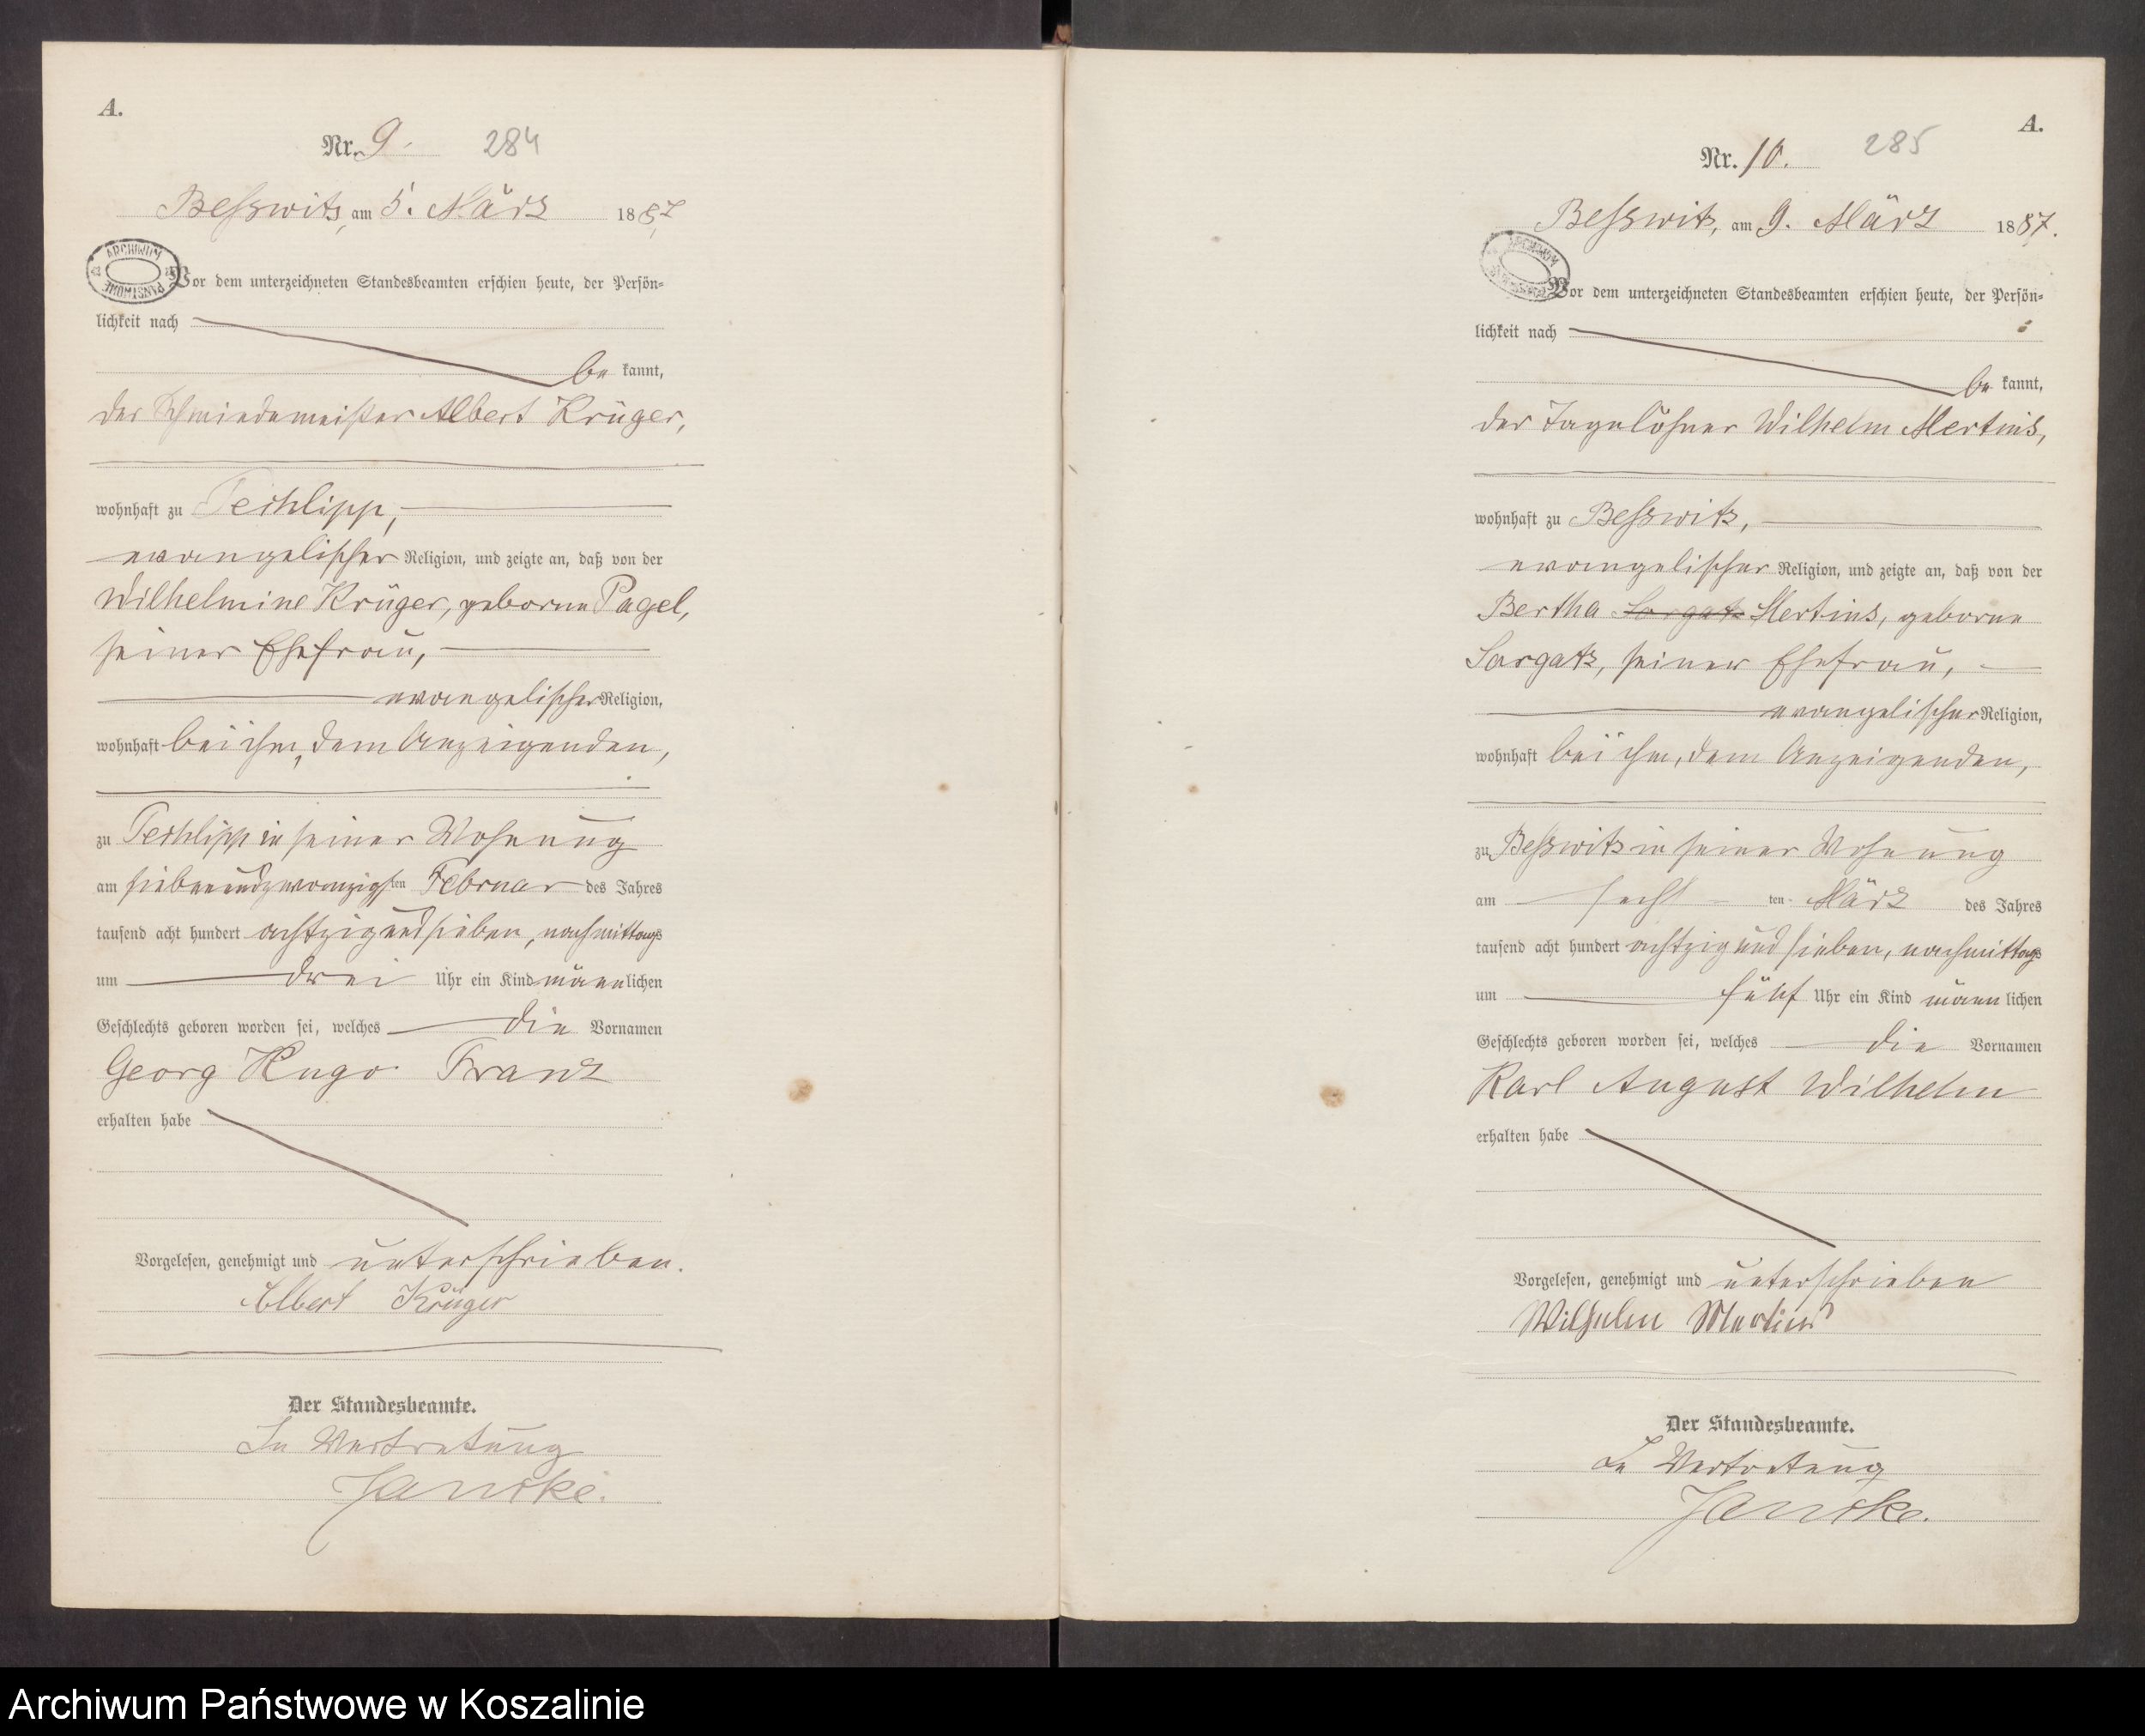 A.
Nr. 9. 284
Beßwitz, am 5. März 1887
ARCHIWUM PAŃSTWOWE
Vor dem unterzeichneten Standesbeamten erschien heute, der Persön-
lichkeit nach
be kannt,
der Schmiedemeister Albert Krüger,
wohnhaft zu Techlipp,
evangelischer Religion, und zeigte an, daß von der
Wilhelmine Krüger, geborne Pagel,
seiner Ehefrau,
evangelischer Religion,
wohnhaft bei ihm, dem Anzeigenden,
zu Techlipp in seiner Wohnung
am siebenundzwanzigsten Februar des Jahres
tausend acht hundert achtzig und sieben, nachmittags
um drei Uhr ein Kind männlichen
Geschlechts geboren worden sei, welches die Vornamen
Georg Hugo Franz
erhalten habe
Vorgelesen, genehmigt und unterschrieben.
Albert Krüger
Der Standesbeamte.
In Vertretung
Jancke.
A.
Nr. 10. 285
Beßwitz, am 9. März 1887.
ARCHIWUM
Vor dem unterzeichneten Standesbeamten erschien heute, der Persön-
lichkeit nach
be kannt,
der Tagelöhner Wilhelm Mertins,
wohnhaft zu Beßwitz,
evangelischer Religion, und zeigte an, daß von der
Bertha Sorgatz Mertins, geborne
Sorgatz, seiner Ehefrau,
evangelischer Religion,
wohnhaft bei ihm, dem Anzeigenden,
zu Beßwitz in seiner Wohnung
am sechs ten März des Jahres
tausend acht hundert achtzig und sieben, nachmittags
um fünf Uhr ein Kind männlichen
Geschlechts geboren worden sei, welches die Vornamen
Karl August Wilhelm
erhalten habe
Vorgelesen, genehmigt und unterschrieben
Wilhelm Mertins
Der Standesbeamte.
In Vertretung
Jancke.
Archiwum Państwowe w Koszalinie